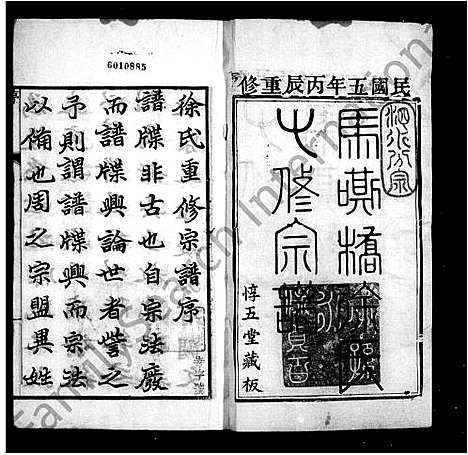 6010885
民國五年丙辰重修
馬嘶橋徐氏
七修宗譜
惇五堂藏板
徐氏重修宗譜序
譜牒非古也自宗法廢
而譜牒興論世者訾之
予則謂譜牒興而宗法
以備也周之宗盟異姓
FamilySearch International